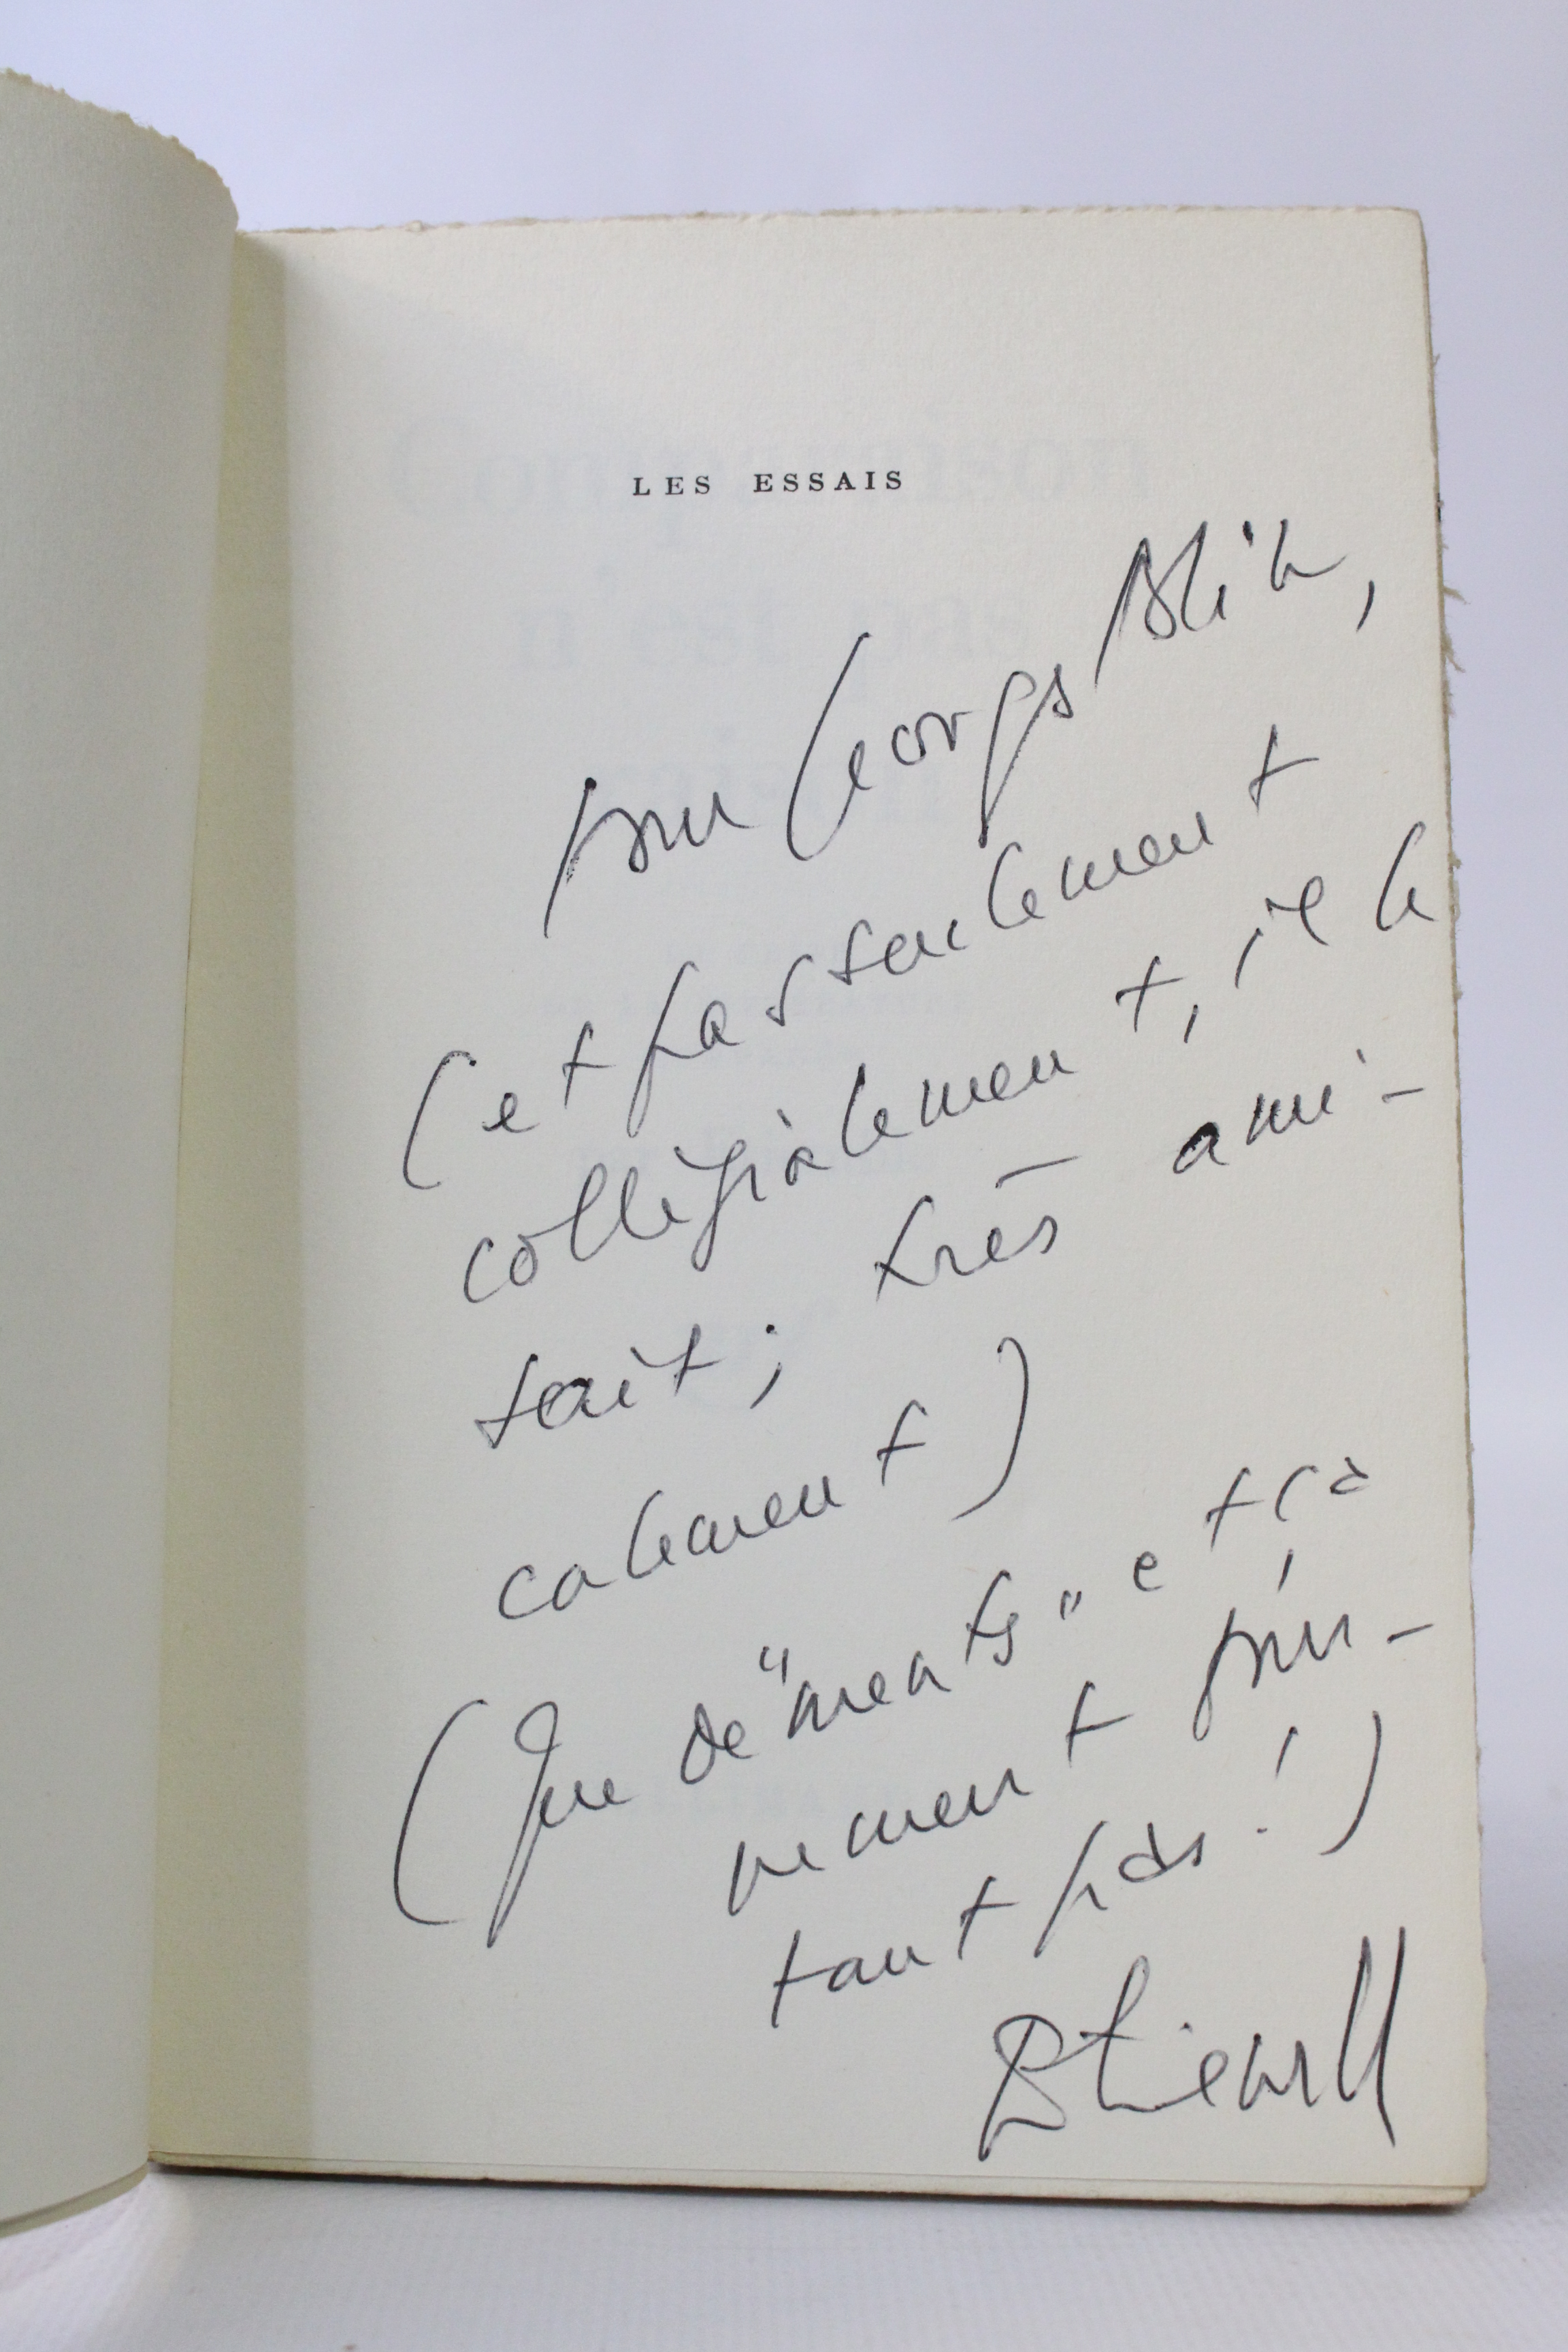 LES ESSAIS
pour Georges Blin,
(et pas seulement
collégialement, il le
sait; très ami-
calement)
(Que de "ments" et ça
ne ment pour-
tant pas!)
Etiemble